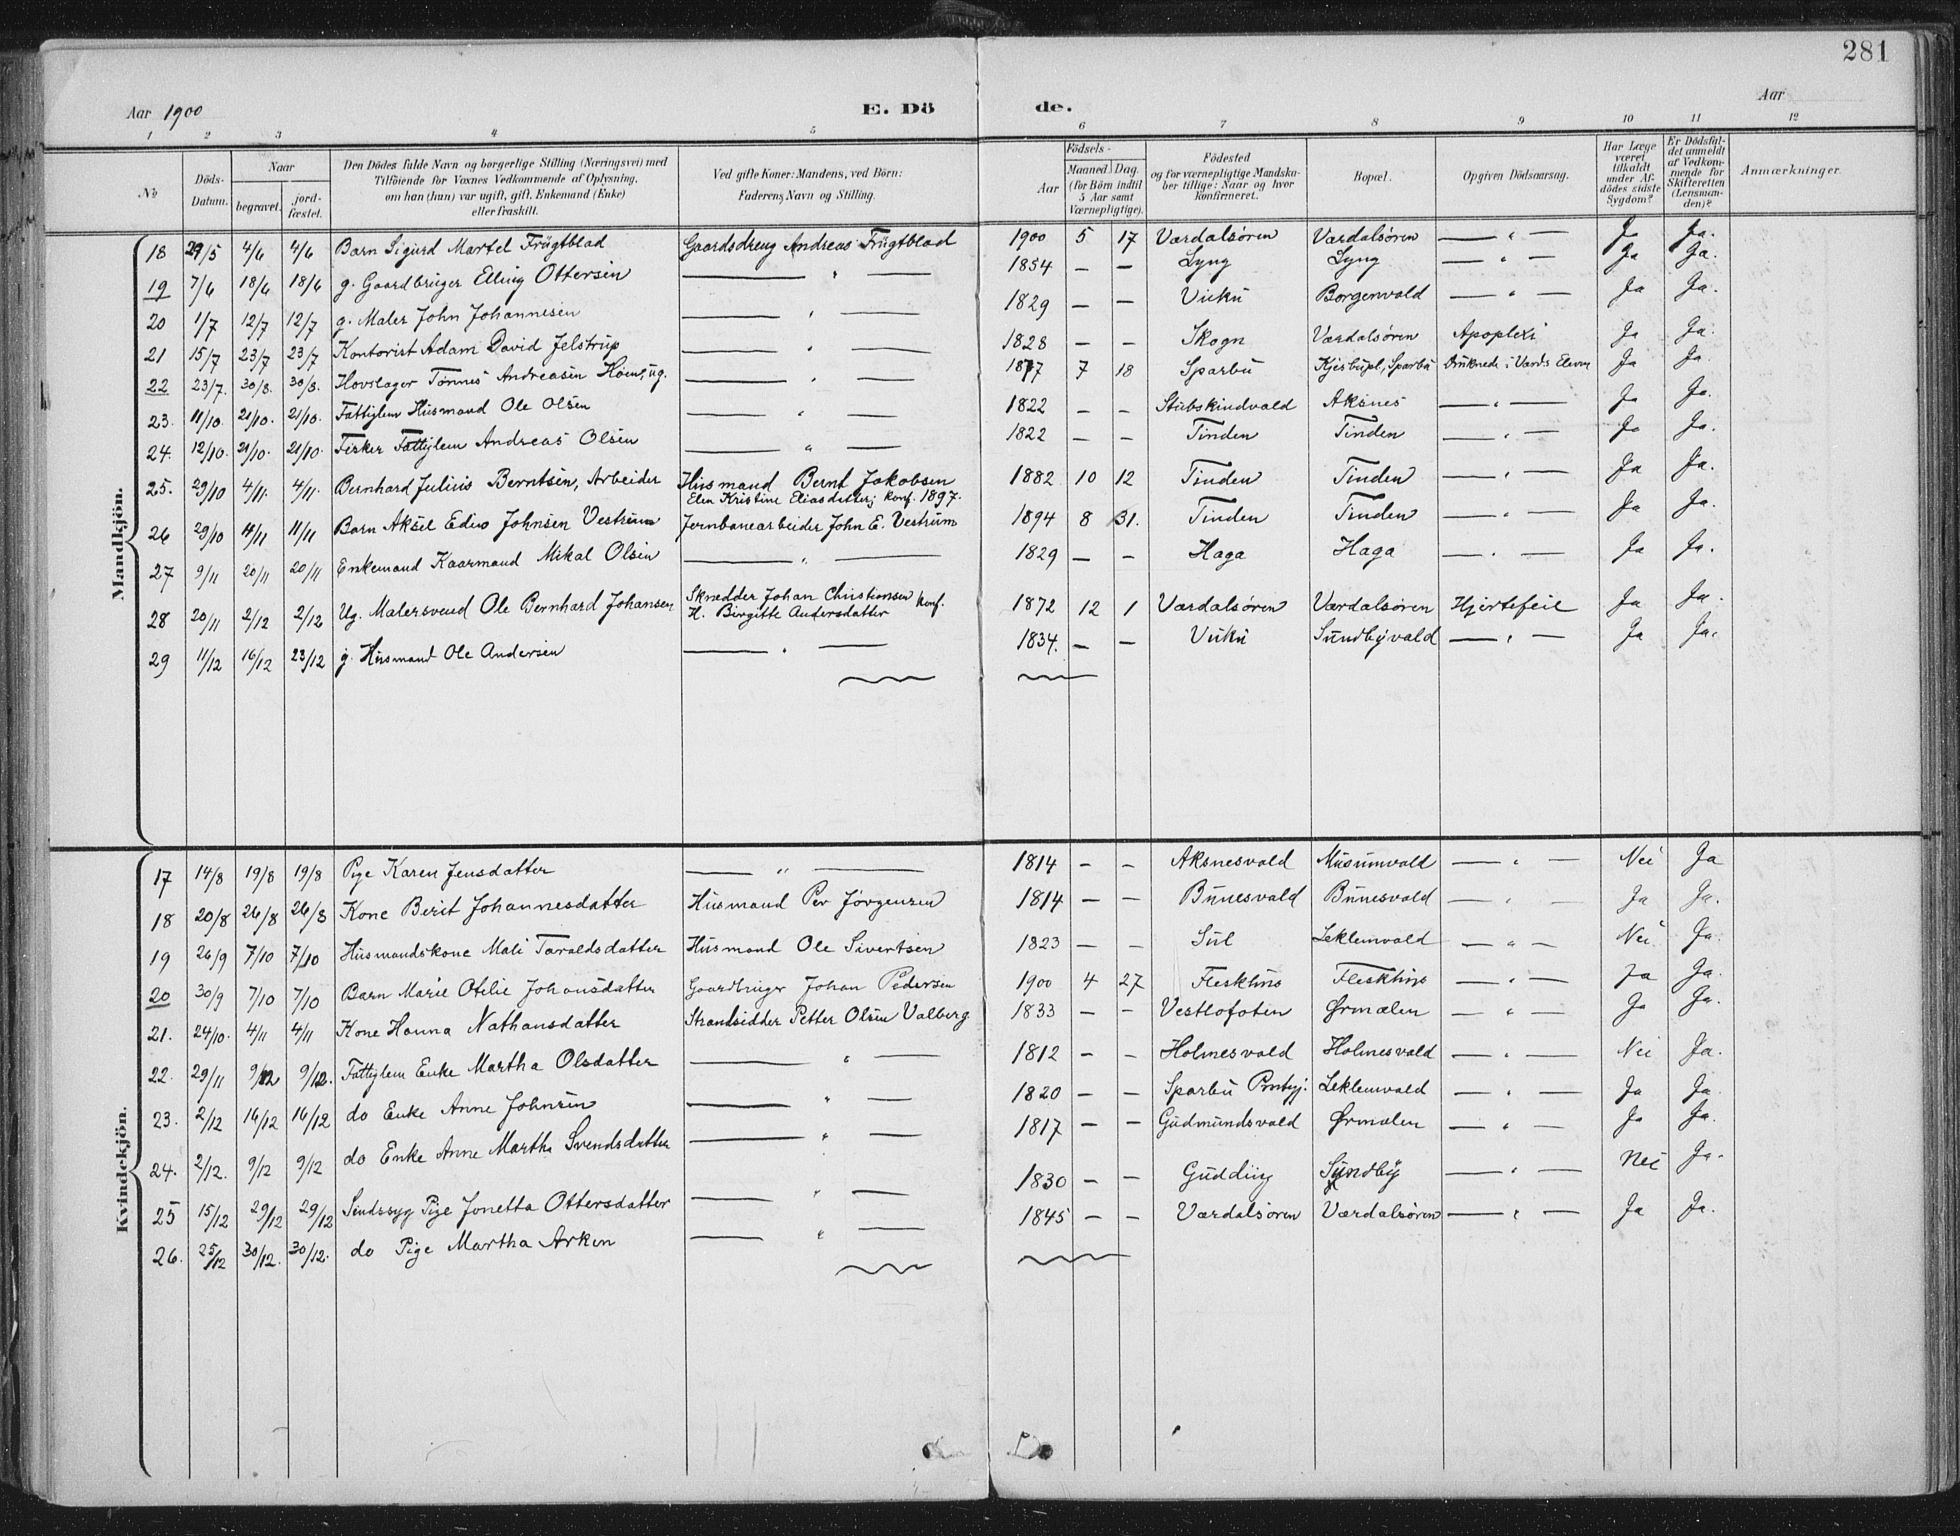 281
Aar 1900 E. Dö de. Aar
1 2 3 4 5 6 7 8 9 10 11 12
No Döds-Datum. Naar begravet. jord-fæstet. Den Dödes fulde Navn og borgerlige Stilling (Næringsvei) med Tilföiende for Voxnes Vedkommende af Oplysning, om han (hun) var ugift, gift, Enkemand (Enke) eller fraskilt. Ved gifte Koner: Mandens, ved Börn: Faderens Navn og Stilling. Födsels- Aar Maaned Dag (for Börn indtil 5 Aar samt Værnepligtige). Födested og for værnepligtige Mandskaber tillige: Naar og hvor konfirmeret. Bopæl. Opgiven Dödsaarsag. Har Læge været tilkaldt under Afdödes sidste Sygdom? Er Dödsfaldet anmeldt af Vedkommende for Skifteretten (Lensmanden)? Anmærkninger.
Mandkjön.
18 29/5 4/6 4/6 Barn Sigurd Martel Frügtblad Gaardsdreng Andreas Frügtblad 1900 5 17 Værdalsøren Værdalsøren — " — Ja Ja.
19 7/6 18/6 18/6 g. Gaardbruger Elling Ottersen — " — 1854 — — Lyng Lyng — " — Ja Ja.
20 1/7 12/7 12/7 g. Maler John Johannesen — " — 1829 — — Vuku Borgenvald — " — Ja Ja.
21 15/7 23/7 23/7 Kontorist Adam David Jelstrup — " — 1828 — — Skogn Værdalsøren Apoplexi Ja Ja.
22 23/7. 30/8. 30/8. Hovslager Tønnes Andreasen Høen, ug. — " — 1877 7 18 Sparbu Kjesbupl, Sparbu Druknede i Værd: Elven Ja Ja.
23. 11/10. 21/10. 21/10. Fattiglem Husmand Ole Olsen — " — 1822 — — Stubskindvald Aksnes — " — Ja Ja.
24. 12/10. 21/10. 21/10. Fisker Fattiglem Andreas Olsen — " — 1822 — — Tinden Tinden — " — Ja Ja.
25. 29/10 4/11. 4/11. Bernhard Julius Berntsen, Arbeider Husmand Bernt Jakobsen 1882 10 12 Tinden Tinden — " — Ja Ja.
Elen Kristine Eliasdatter; Konf. 1897.
26 29/10 11/11 11/11 Barn Aksel Edin Johnsen Vestrum Jernbanearbeider John E. Vestrum 1894 8 31. Tinden Tinden — " — Ja Ja.
27 9/11 20/11 20/11 Enkemand Kaarmand Mikal Olsen — " — 1829 — — Haga Haga — " — Ja Ja.
28 20/11 2/12 2/12 Ug. Malersvend Ole Bernhard Johansen Skrædder Johan Christiansen 1872 12 1 Værdalsøren Værdalsøren Hjertefeil Ja Ja.
H. Birgitte Andersdatter Konf.
29 11/12 16/12 23/12 g. Husmand Ole Andersen — " — 1834. — — Vuku Sundbyvald — " — Ja Ja.
Kvindekjön.
17 14/8 19/8 19/8 Pige Karen Jensdatter — " — 1814 — — Aksnesvald Musumvald — " — Nei Ja
18 20/8 26/8 26/8 Kone Berit Johannesdatter Husmand Per Jørgensen 1814 — — Bunesvald Bunesvald — " — Ja Ja.
19 26/9 7/10 7/10 Husmandskone Mali Taraldsdatter Husmand Ole Sivertsen 1823 — — Sul Leklemvald — " — Nei Ja.
20 30/9 7/10 7/10 Barn Marie Otilie Johansdatter Gaardbruger Johan Pedersen 1900 4 27 Fleskhus Fleskhus — " — Ja Ja.
21. 24/10. 4/11 4/11 Kone Hanna Nathansdatter Strandsidder Petter Olsen Valberg 1833 — — Vestlofoten Ørmælen — " — Ja Ja.
22. 29/11 9/12 9/12. Fattiglem Enke Martha Olsdatter — " — 1812 — — Holmesvald Holmesvald — " — Nei Ja.
23. 2/12 16/12 16/12 do Enke Anne Johnsen — " — 1820 — — Sparbu Leklemvald — " — Ja Ja.
24. 2/12. 9/12 9/12 do Enke Anne Martha Svendsdatter — " — 1817 — — Gudmundsvald Ørmælen — " — Ja Ja.
25 15/12 29/12 29/12 Sindssyg Pige Jonetta Ottersdatter — " — 1830 — — Gudding Sundby — " — Nei Ja.
26. 25/12 30/12. 30/12. do Pige Martha Arken — " — 1845 — — Værdalsøren Værdalsøren — " — Ja Ja.